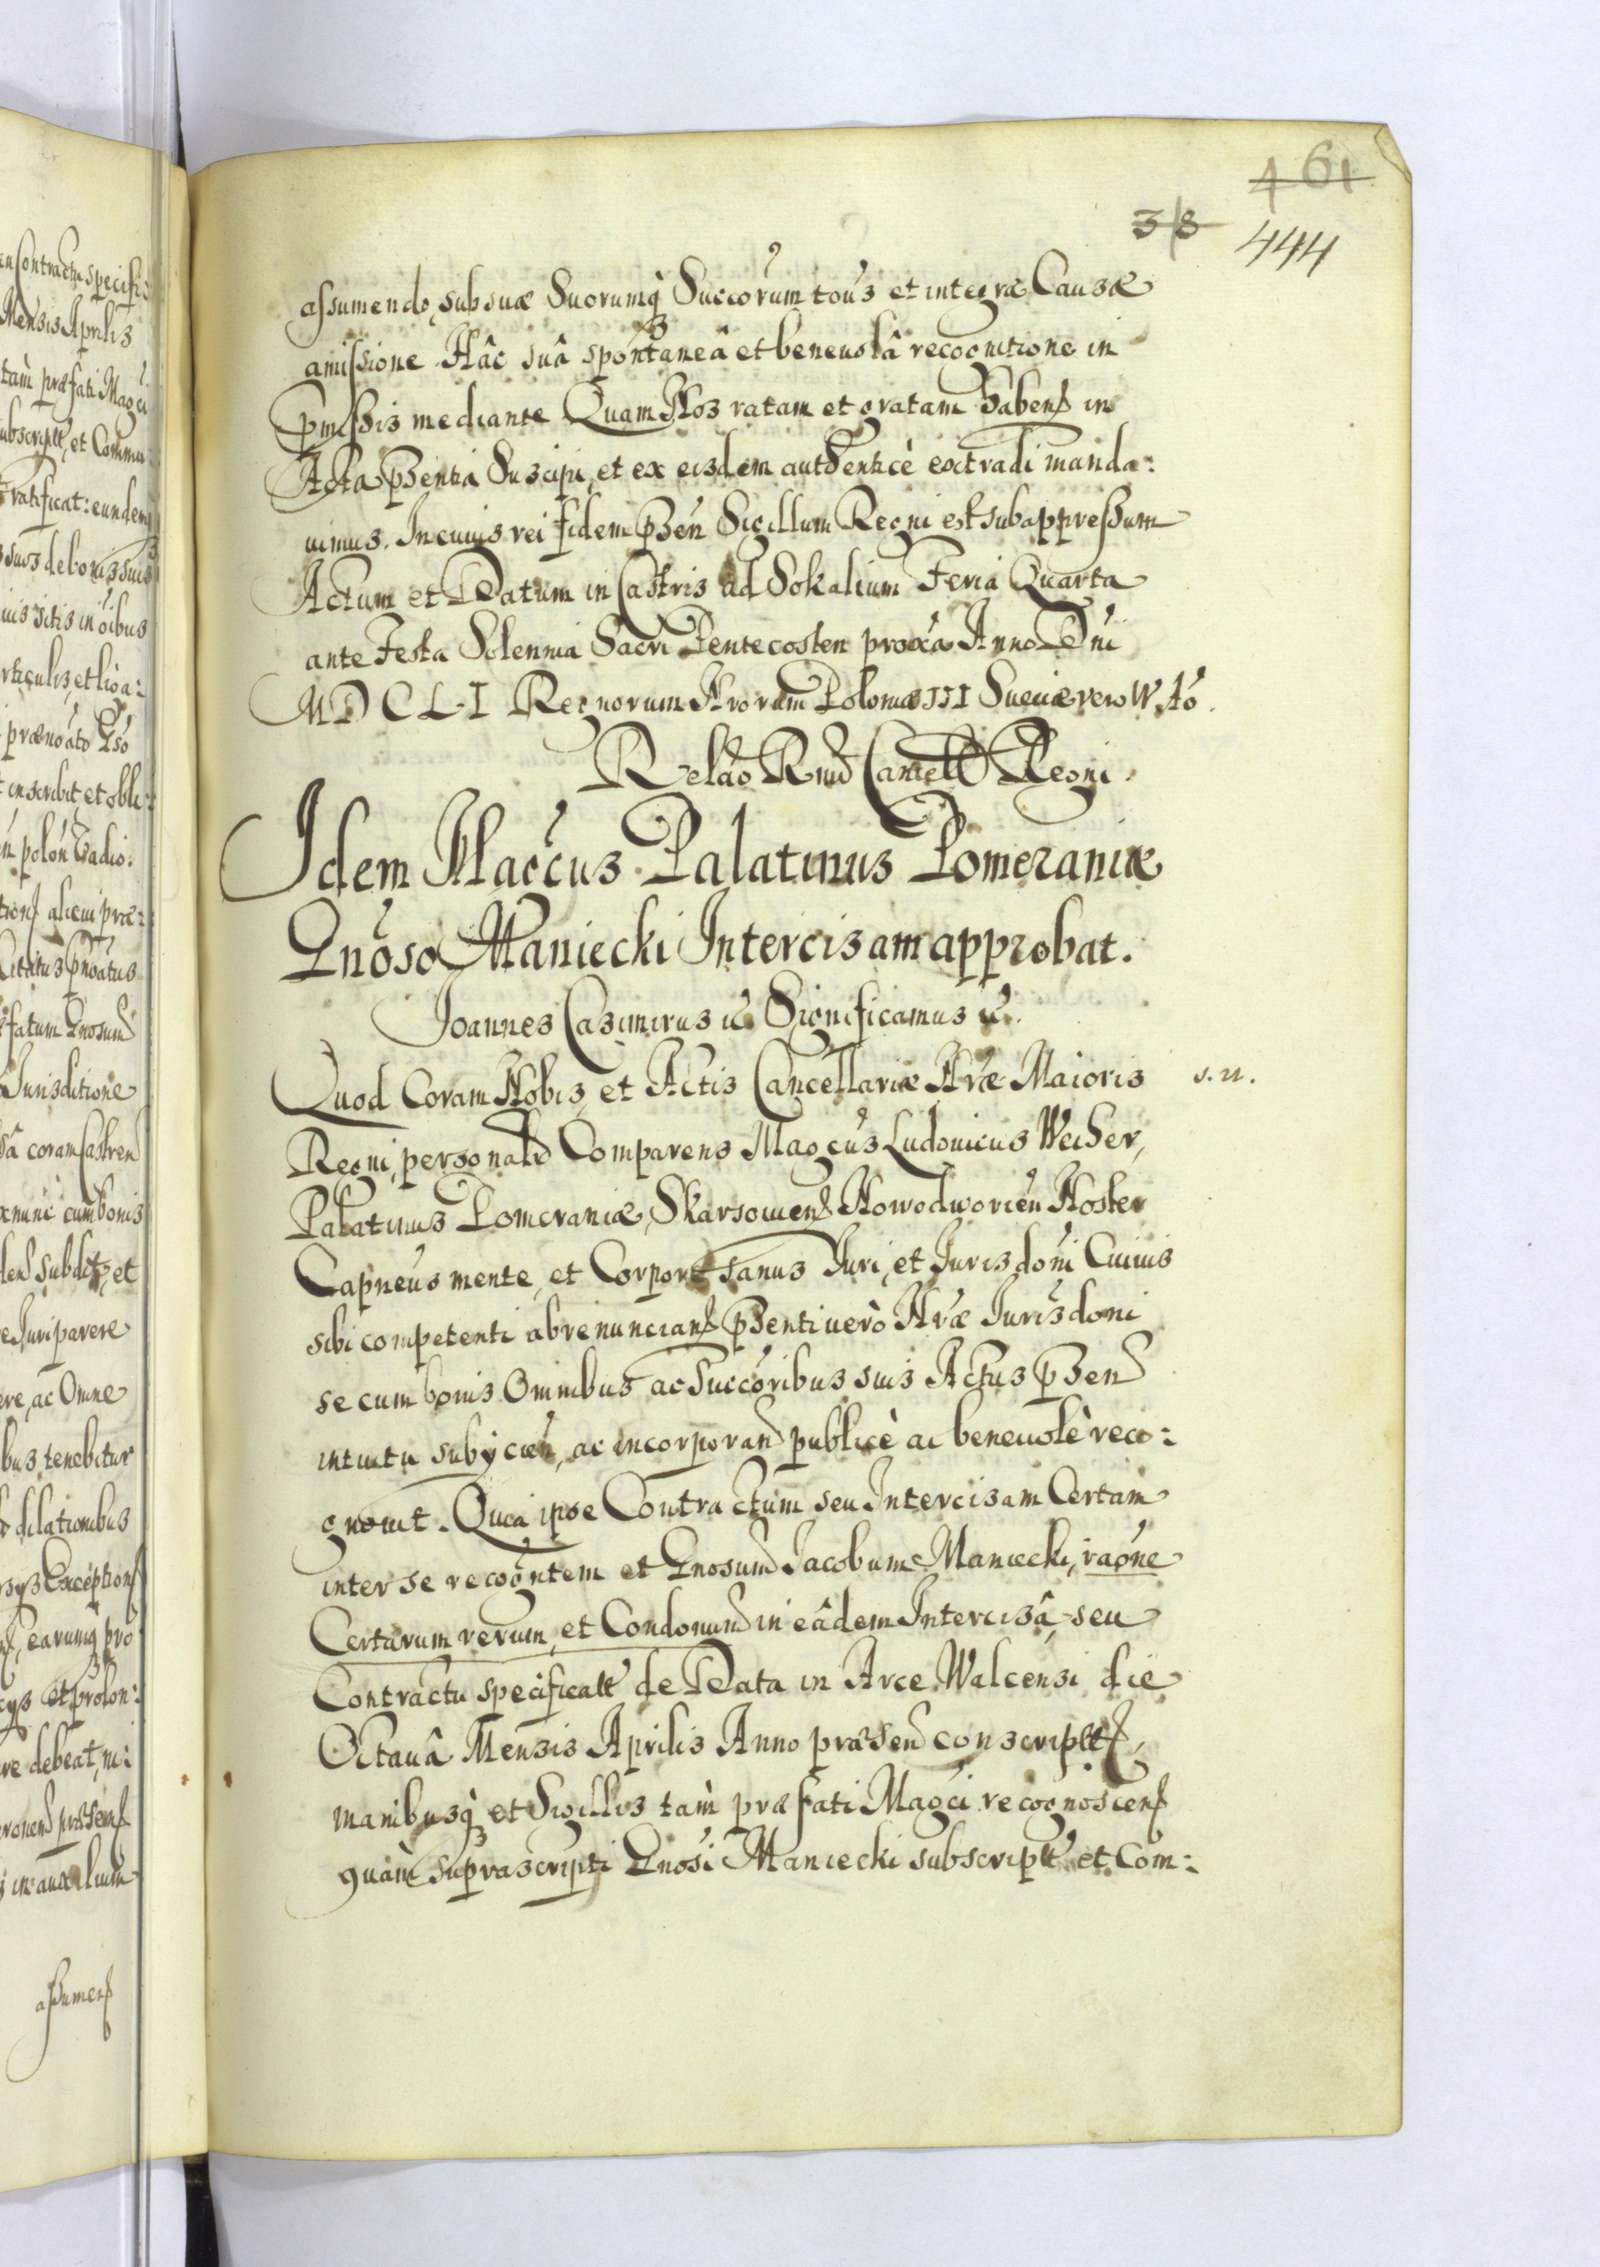 461
3/8 444
assumendo, sub suæ Suorumq̀ Succorum toús et integræ Causæ
amissione Hâc suâ spontaneâ et beneuolâ recognitione in
pmissis mediante Quam Nos ratam et gratam habens in
Acta pntia Suscipi, et ex eisdem authenticè extradi manda:
uimus. In cuius rei fidem pñtń Sigillum Regni est subappressum
Actum et Datum in Castris ad Sokalium Feria Quarta
ante Festa Solennia Sacri Pentecosten proxâ Anno Dni
MDCLI Regnorum Nrorum Poloniæ III Sueciæ vero IV Ao.
Relao Rnd Cancell Regni.
Idem Magcus Palatinus Pomeraniæ
Gnoso Maniecki Intercisam approbat.
Joannes Casimirus &c Significamus &c.
Quod Coram Nobis, et Actis Cancellariæ Nræ Maioris s. n.
Regni, personalr Comparens Magcus Ludouicus Weiher,
Palatinus Pomeraniæ, Skarsouien Nowodworień Noster
Capneus mente, et Corpore sanus Juri, et Juris doni Cuiuis
sibi competenti abrenuncians pntiuerò Nræ Jurisdoni
se cum bonis Omnibus ac Succoribus suis Actus pnten
intuitu subÿcień, ac incorporan publicè ac beneuolè reco:
gnouit. Quia ipse Contractum seu Intercisam Certam
inter se recogntem et Gnosum Jacobum Maniecki, raone
Certarum rerum, et Condonum in eâdem Intercisâ, seu
Contractu specificatt de Data in Arce Walcensi die
Octauâ Mensis Aprilis Anno præsen conscriptt,
manibusq̀ et Sigillis tam præfati Magci recognoscens
quàm suprascripti Gnosi Maniecki subscriptt et Com:
an Contractu specific
Mensis Aprilis
tàm præfati Magci
subscriptt, et Commu
ratificat: eundemq
suos de bonis suis
uis sitis in oibus
rticulis, et liga:
prænoato Gso
t inscribit, et obli:
n polon tradio:
tions alicui præ:
Citatus pnoatus
fatum Gnosum
Jurisditione
sâ coram Castren
x nunc cum bonis
len Subdts, et
e Juri parere
ere, ac Omne
bus tenebitur
dilationibus
rsÿs Exceptions
s, earumq̀ pro
cÿs et prolon:
re debeat, ni:
ronens præsens
in auxilium
assumens